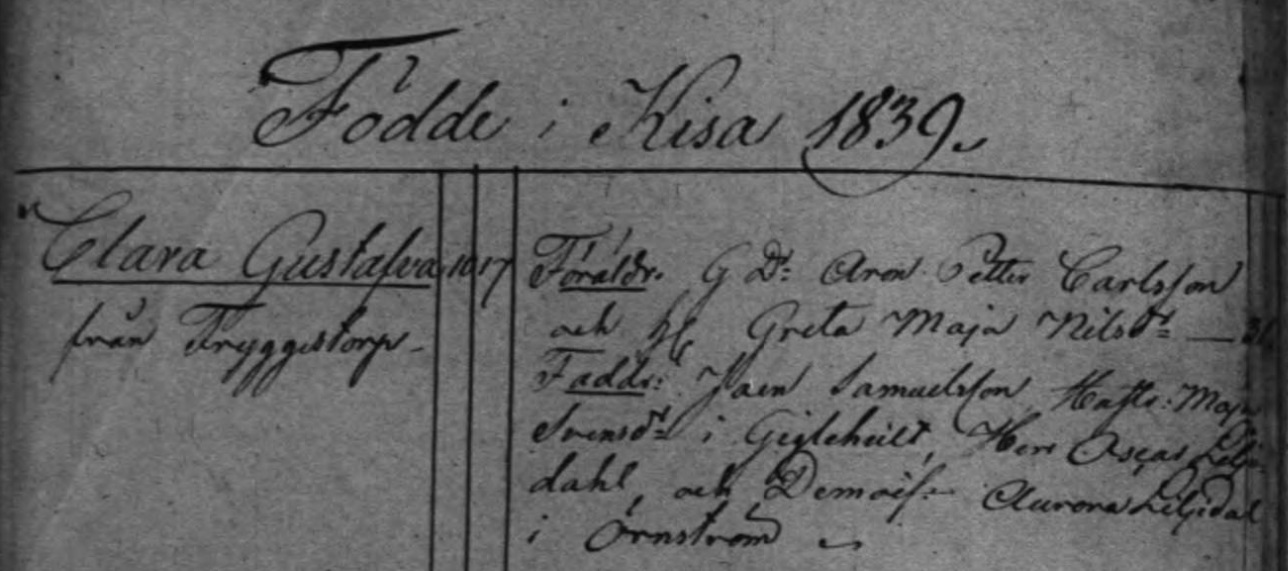 Födde i Kisa 1839.
Clara Gustafva 10 17
från Tryggestorp
Föräldr. G D: Aron Petter Carlsson
och H. Greta Maja Nilsdr — 31
Faddr: Samuelsson Hustr. Maja
Svensdr i Giglehult, Herr Oscar Lilje
dahl, och Demois: Aurora Liljedal
i Örnström